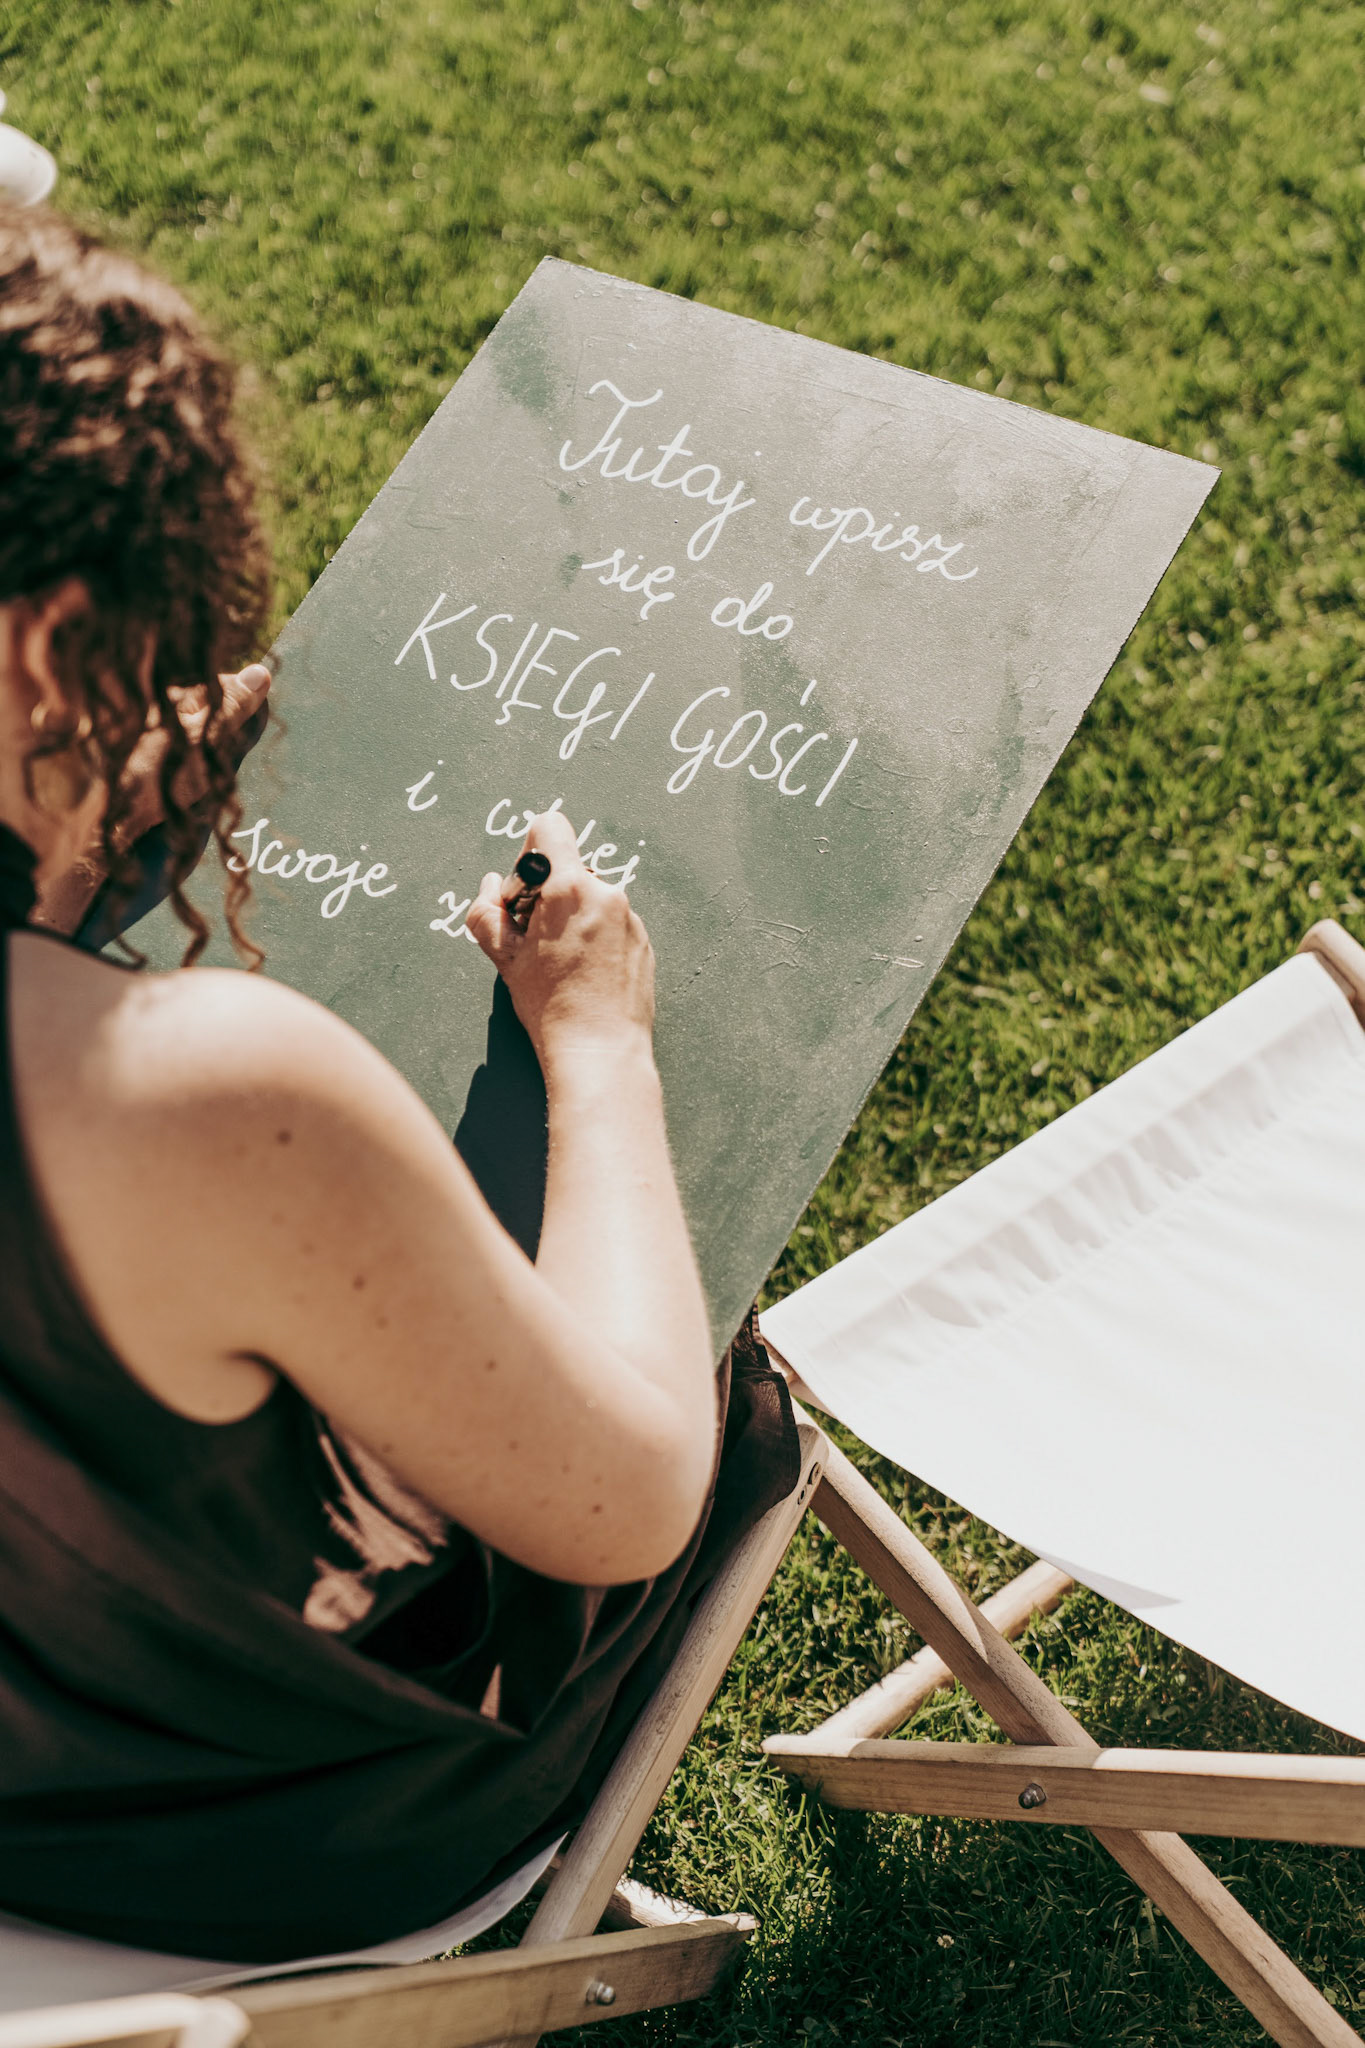 Tutaj wpisz
się do
KSIĘGI GOŚCI
i
swoje